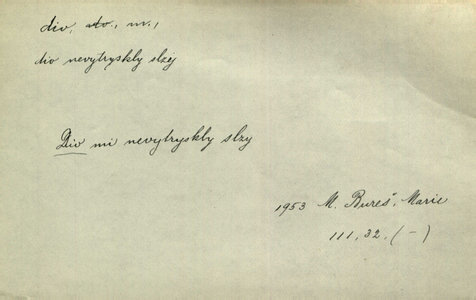 div, -u., m.,
div nevytryskly slzy
Div mi nevytryskly slzy
1953 M. Bureš, Marie
111, 32. (-)